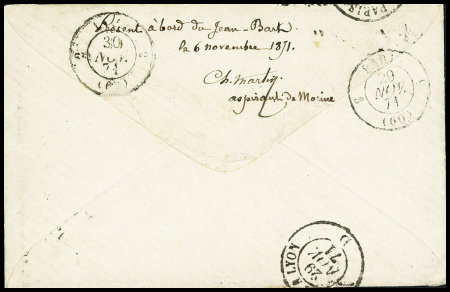 PARIS
Présent à bord du Jean-Bart
30
NOV.
71
(60)
le 6 novembre 1871.
Ch. Martin
aspirant de Marine
PARIS
30
NOV.
71
(60)
A LYON
29
NOV.
71